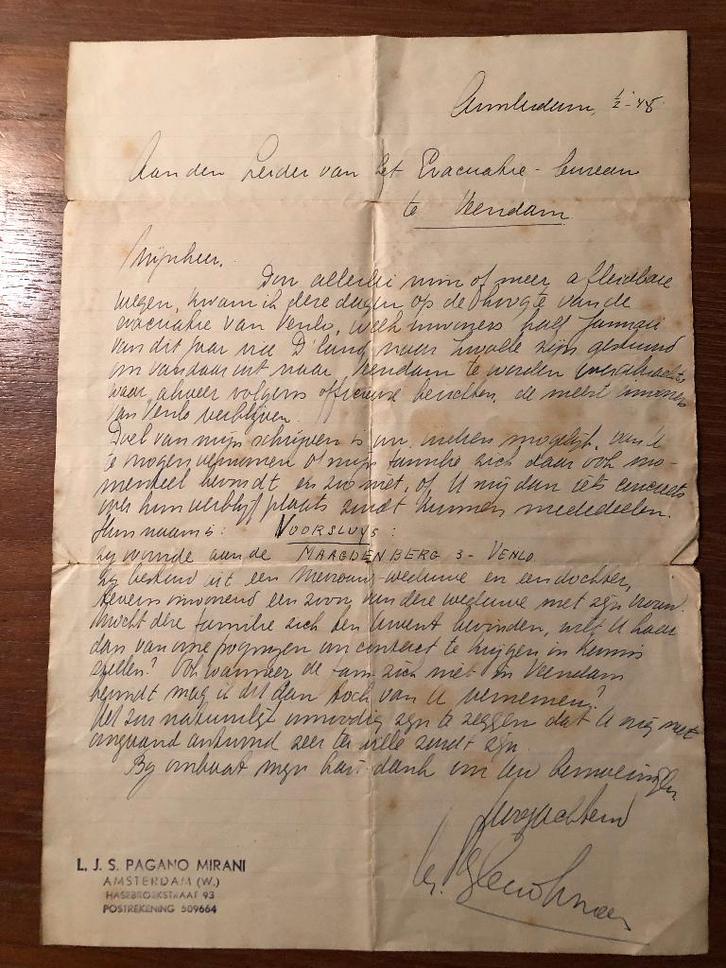 Amsterdam, 1/2-45
Aan den Leider van het Evacuatie-bureau
te Veendam
Mijnheer.
Door allerlei min of meer afleidbare
wegen, kwam ik dezer dagen op de hoogte van de
evacuatie van Venlo, welk inwoners half Januari
van dit jaar via D'land naar Zwolle zijn gestuurd
om vandaar uit naar Veendam te worden
waar alweer volgens officieuse berichten, de meest inwoners
van Venlo verblijven.
Doel van mijn schrijven is om, indien mogelijk, van U
te mogen vernemen of mijn familie zich daar ook mo-
menteel bevindt en zoo niet, of U mij dan iets concreets
over hun verblijfplaats zoudt kunnen mededeelen.
Hun naam is: VOORSLUYS:
zij woonde aan de MAAGDENBERG 3 - VENLO
Zij bestaat uit een Mevrouw-weduwe en een dochter,
tevens inwonend een zoon van deze weduwe met zijn vrouw.
Mocht deze familie zich ten Uwent bevinden, wilt U haar
dan van onze pogingen om contact te krijgen in kennis
stellen? Ook wanneer de fam. zich niet in Veendam
bevindt mag ik dit dan toch van U vernemen?
Het zou natuurlijk onnoodig zijn te zeggen dat U mij met
omgaand antwoord zeer ter wille zoudt zijn.
Bij voorbaat mijn hart. dank voor Uw bemoeiingen.
Hoogachtend
L. J. S. PAGANO MIRANI
AMSTERDAM (W.)
HASEBROEKSTRAAT 93
POSTREKENING 509664